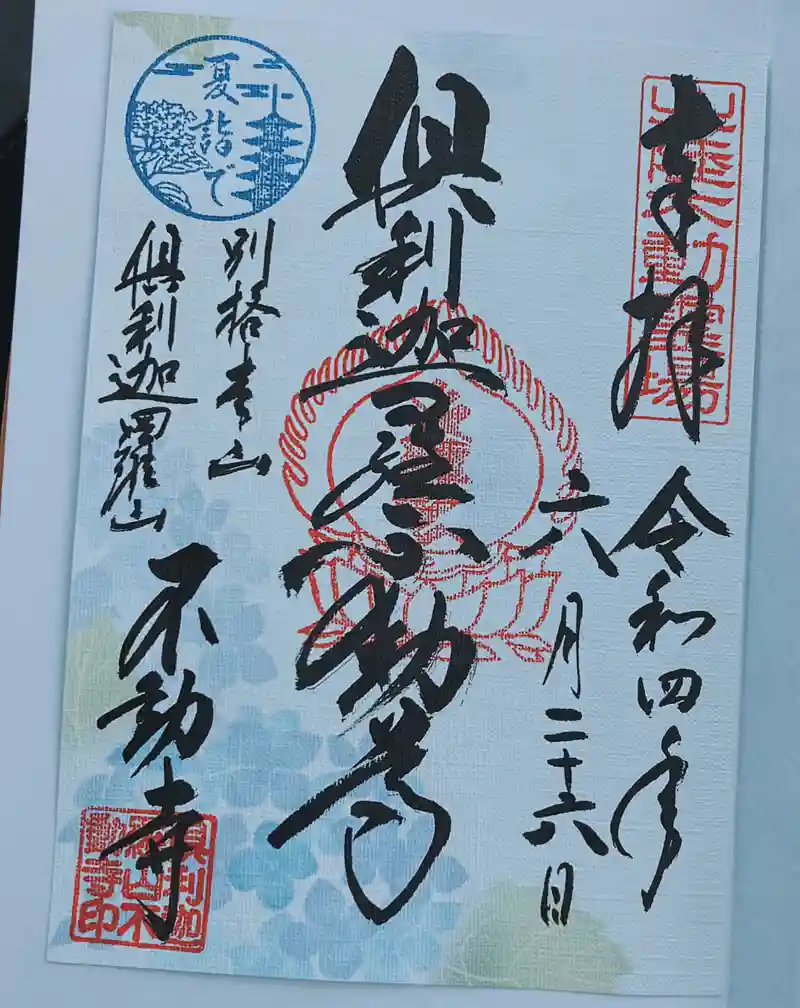 奉拝
北陸不動霊場
令和四年
六月二十六日
倶利迦羅不動尊
夏詣で
別格本山
倶利迦羅山
不動寺
倶利迦
羅山不
動寺印